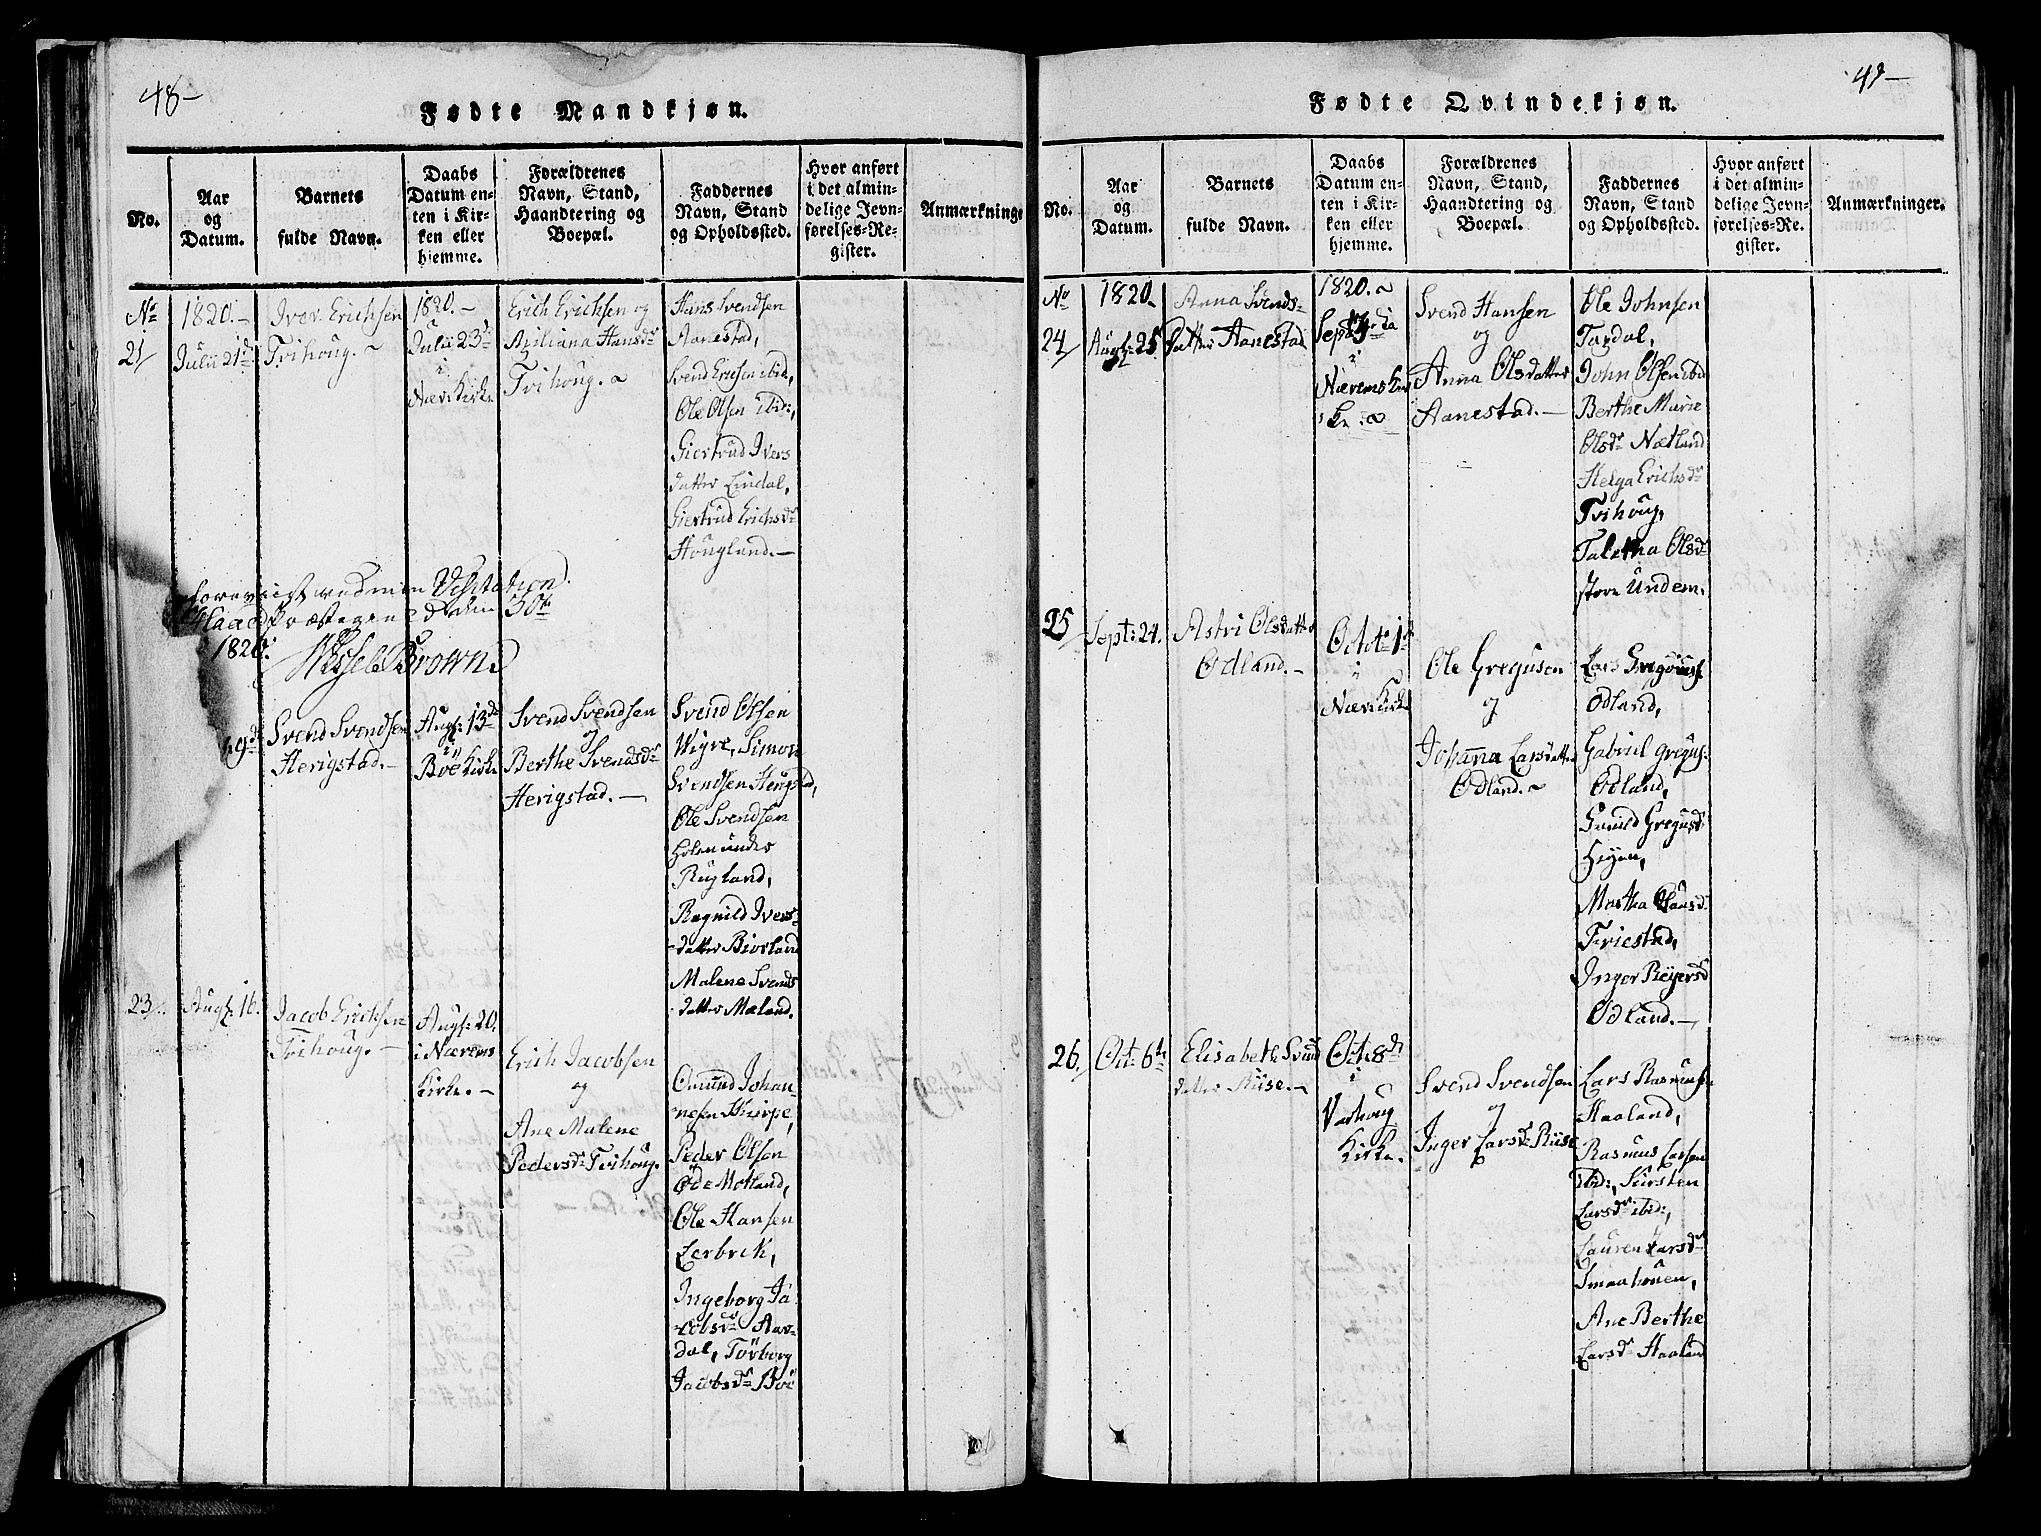 48-
Fødte Mandkjøn.
No.
Aar
og
Datum.
Barnets
fulde Navn.
Daabs
Datum en-
ten i Kir-
ken eller
hjemme.
Forældrenes
Navn, Stand,
Haandtering og
Boepæl.
Faddernes
Navn, Stand
og Opholdssted.
Hvor anført
i det almin-
delige Jevn-
førelses-Re-
gister.
Anmærkninge
No
21/
1820.-
Julii 21d
Iver Erichsen
Tvihoug.
1820.-
Julii 23de
i
Nær: Kirke
Erich Erichsen og
Hansdr
Tvihoug.
Hans Svendsen
Aanestad,
Svend Ericsen ibid,
Ole Olsen ibid:,
Giertrud Ivers
datter Lindal,
Giertrud Erichsdr
Hougland.-
foreviist ved min Visitation
Haa Præstegaard den 30te
1820.
Wessel Brown
29de
Svend Svendsen
Herigstad.-
Augs: 13de
i
Böe Kirke
Svend Svendsen
og
Berthe Svendsdr
Herigstad.-
Svend Olsen
Wigre, Simon
Svendsen Herigstad,
Ole Svendsen
Holen under
Rugland,
Ragnild Ivers-
datter Biorland
Malene Svends
datter Mæland.
23/.
Augs: 16.
Jacob Erichsen
Tvihoug.-
Augs: 20.
i Nærems
Kirke.-
Erich Jacobsen
og
Ane Malene
Pedersdr Tvihoug.
Omund Johan-
nesen
Peder Olsen
Öde Motland,
Ole Hansen
Lerbrek,
Ingeborg Ja-
cobsdr Aar-
dal, Törborg
Jacobsdr Böe
49-
Fødte Qvindekjøn.
No.
Aar
og
Datum.
Barnets
fulde Navn.
Daabs
Datum en-
ten i Kir-
ken eller
hjemme.
Forældrenes
Navn, Stand,
Haandtering og
Boepæl.
Faddernes
Navn, Stand
og Opholdssted.
Hvor anført
i det almin-
delige Jevn-
førelses-Re-
gister.
Anmærkninger.
No
24/
1820.
Augs: 25
Anna Svends-
datter Aanestad
1820.
Sept: 3die
i
Nærems Kir
Svend Hansen
og
Anna Olsdatter
Aanestad.-
Ole Johnsen
Taxdal,
John Olsen ibid
Berthe Marie
Olsdr Nætland
Helga Erichsdr
Tvihoug,
Taletha Olsdr
store Undem.
25/
Sept: 24.
Astri Olsdatter
Odland.-
Octob: 1te
i
Nær: Kirke
Ole Gregusen
og
Johanna Larsdatter
Odland.
Lars Gregöus:
Odland,
Gabriel Gregus:
Odland,
Gunild Gregusdr
Höyen,
Martha Clausdr
Friestad,
Inger Reyersdr
Odland.-
26.
Oct: 6te
Elisabeth Svend
datter Riise.-
Oct: 8de
i
Varhoug
Kirke.
Svend Svendsen
og
Inger Larsdr Riise
Lars Rasmusen
Haaland,
Rasmus Larsen
ibid:, Kirsten
Larsdr ibid:,
Lauren Larsdr
Smaahouen,
Ane Berthe
Larsdr Haaland